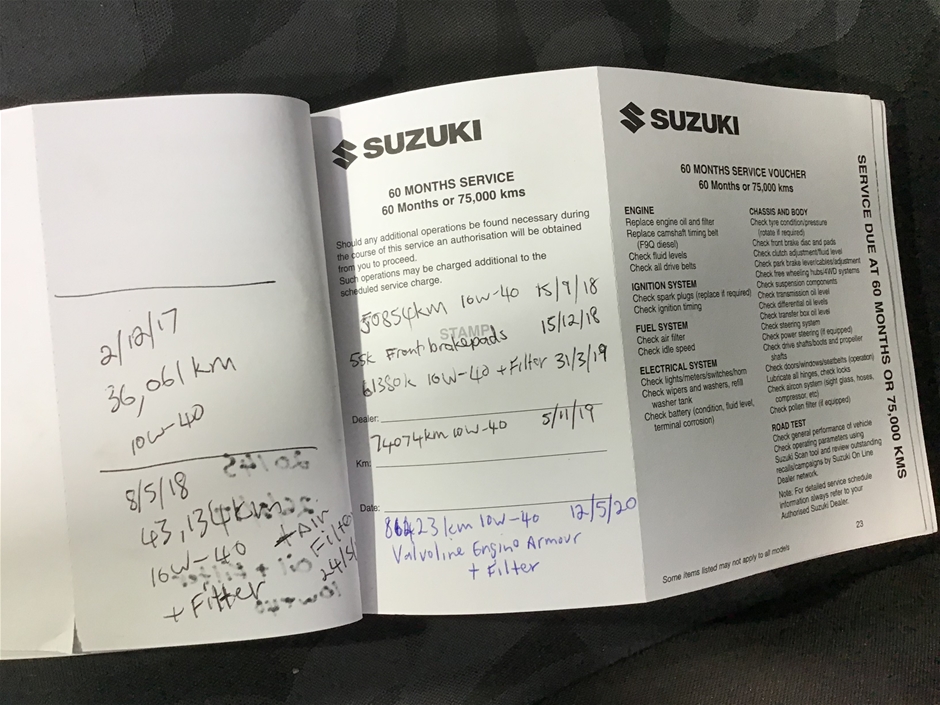 2/12/17
36,061km
10w-40
8/5/18
43,134km
10w-40 + Air Filter
+ Filter 24/5/
SUZUKI
60 MONTHS SERVICE
60 Months or 75,000 kms
Should any additional operations be found necessary during
the course of this service an authorisation will be obtained
from you to proceed.
Such operations may be charged additional to the
scheduled service charge.
50854km 10w-40 15/9/18
STAMP
55k Front brakepads 15/12/18
61380k 10w-40 + Filter 31/3/19
Dealer:
74074km 10w-40 5/11/19
Km:
Date:
23km 10w-40 12/5/20
Valvoline Engine Armour
+ Filter
SUZUKI
60 MONTHS SERVICE VOUCHER
60 Months or 75,000 kms
ENGINE
Replace engine oil and filter
Replace camshaft timing belt
(F9Q diesel)
Check fluid levels
Check all drive belts
IGNITION SYSTEM
Check spark plugs (replace if required)
Check ignition timing
FUEL SYSTEM
Check air filter
Check idle speed
ELECTRICAL SYSTEM
Check lights/meters/switches/horn
Check wipers and washers, refill
washer tank
Check battery (condition, fluid level,
terminal corrosion)
CHASSIS AND BODY
Check tyre condition/pressure
(rotate if required)
Check front brake disc and pads
Check clutch adjustment/fluid level
Check park brake lever/cables/adjustment
Check free wheeling hubs/4WD systems
Check suspension components
Check transmission oil level
Check differential oil levels
Check transfer box oil level
Check steering system
Check power steering (if equipped)
Check drive shafts/boots and propeller
shafts
Check doors/windows/seatbelts (operation)
Lubricate all hinges, check locks
Check aircon system (sight glass, hoses,
compressor, etc)
Check pollen filter (if equipped)
ROAD TEST
Check general performance of vehicle
Check operating parameters using
Suzuki Scan tool and review outstanding
recalls/campaigns by Suzuki On Line
Dealer network.
Note: For detailed service schedule
information always refer to your
Authorised Suzuki Dealer.
23
Some items listed may not apply to all models
SERVICE DUE AT 60 MONTHS OR 75,000 KMS